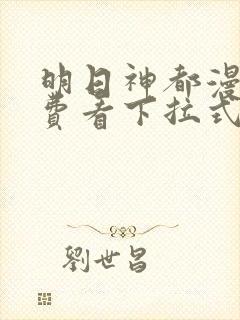 明日神都漫
费看下拉式
劉世昌